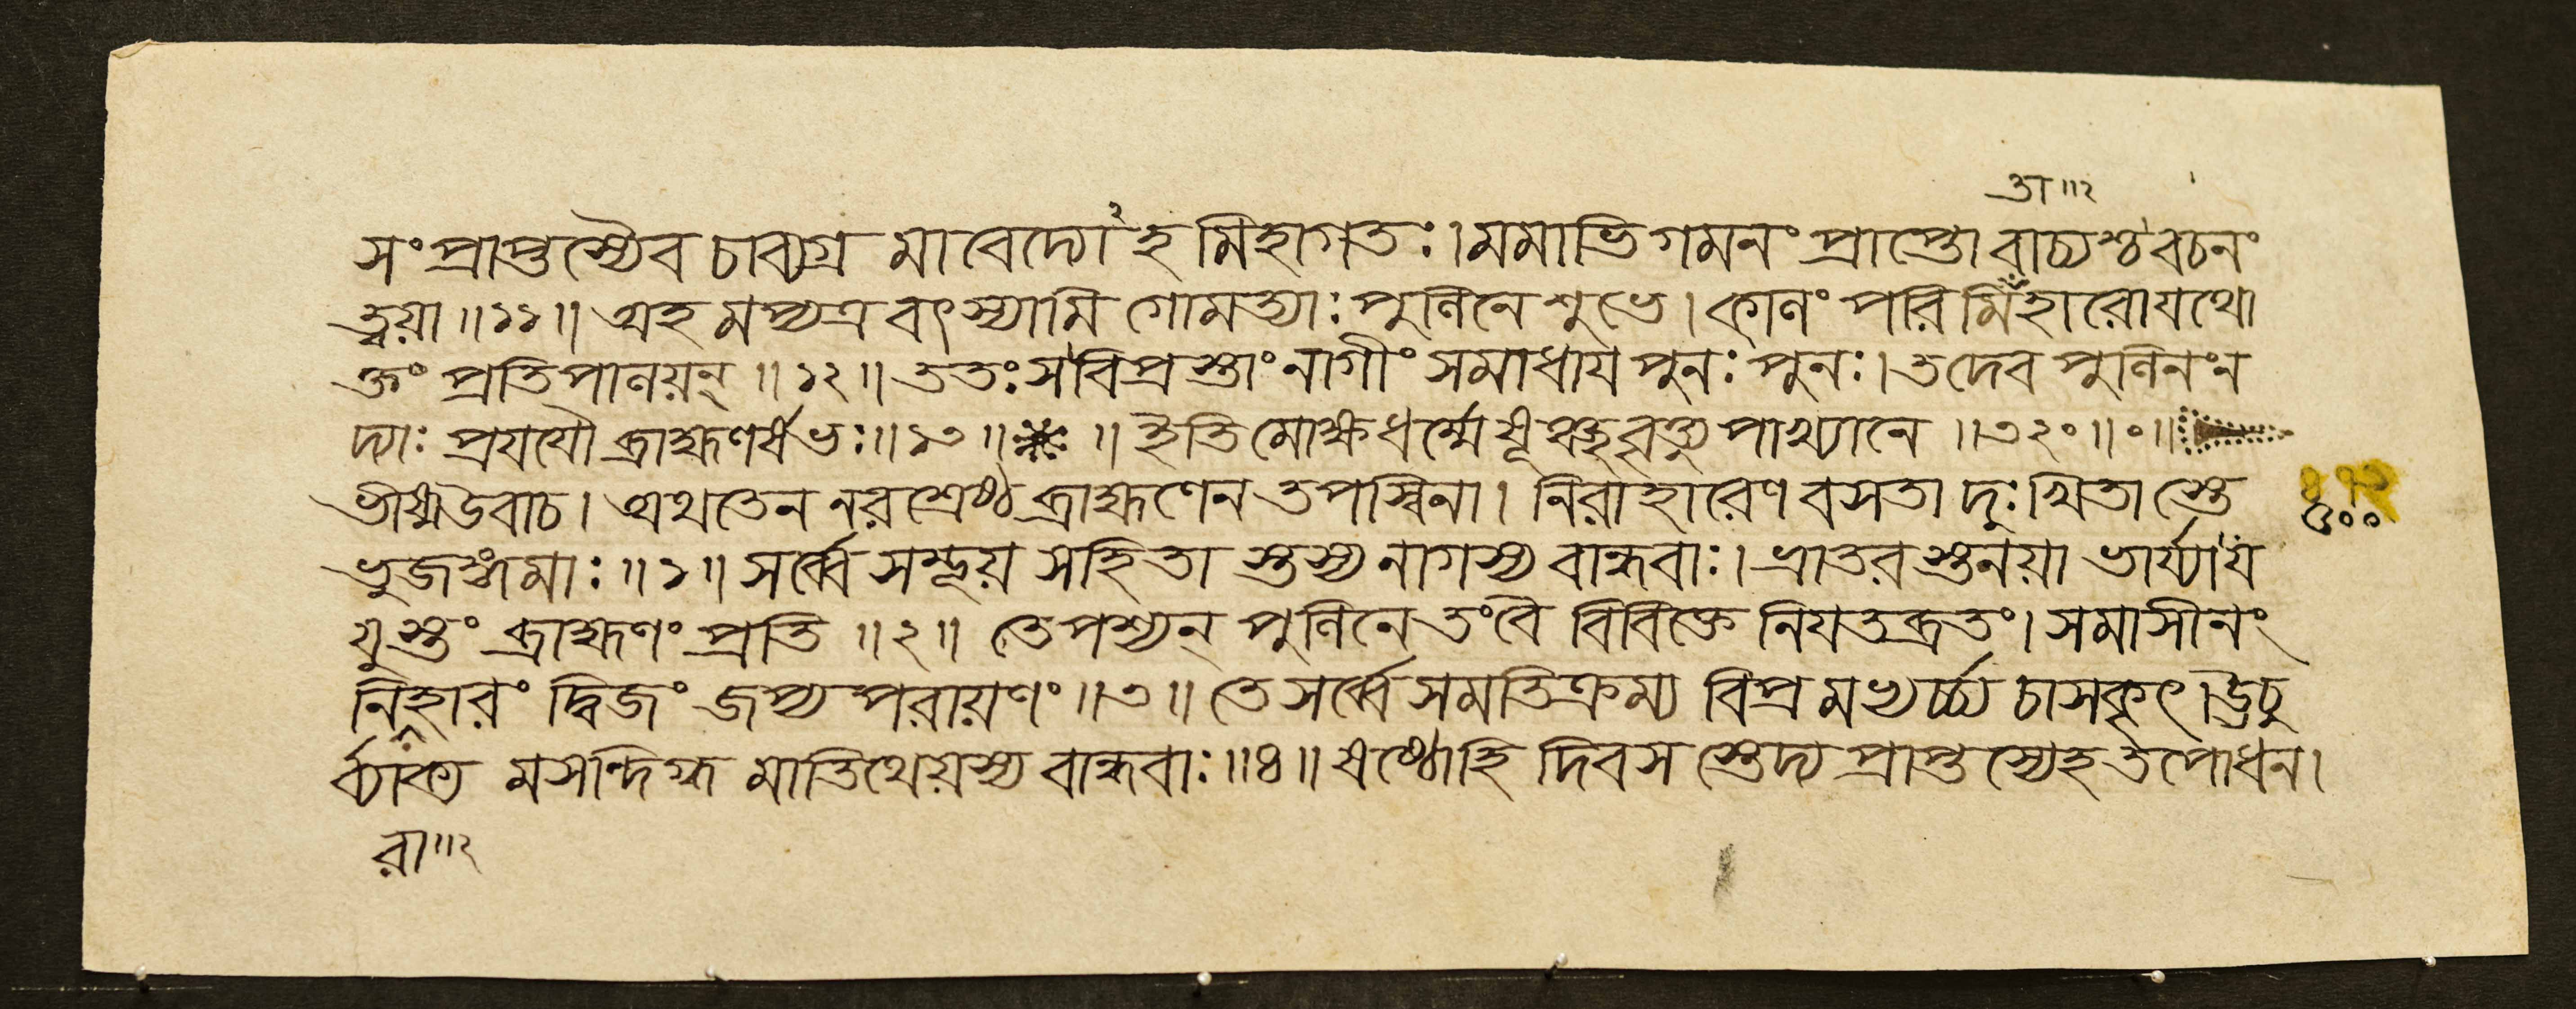 তা॥২
সংপ্রাপ্তস্যৈব চাব্যগ্র মাবেদ্যো২হ মিহাগতঃ। মমাভিগমনং প্রাপ্তো বাচ্যশ্চ বচনং
ত্বয়া ॥১১॥ অহ মপ্যত্র বৎস্যামি গোমত্যাঃ পুলিনে শুভে। কালং পরিমিতাহারো যথো
ক্তং প্রতিপালয়ন্ ॥১২॥ ততঃ স বিপ্রস্তাং নাগীং সমাধায় পুনঃ পুনঃ। তদেব পুলিনং ন
দ্যাঃ প্রযযৌ ব্রাহ্মণর্ষভঃ ॥১৩॥ ॥ ইতি মোক্ষধর্ম্মে পাখ্যানে ॥৩২০॥০॥
ভীষ্ম উবাচ। অথ তেন নরশ্রেষ্ঠ ব্রাহ্মণেন তপস্বিনা। নিরাহারেণ বসতা দুঃখিতা স্তে
ভুজঙ্গমাঃ ॥১॥ সর্ব্বে সম্ভূয় সহিতা স্তস্য নাগস্য বান্ধবাঃ। ভ্রাতর স্তনয়া ভার্য্যা য
যুস্তং ব্রাহ্মণং প্রতি ॥২॥ তেপশ্যন্ পুলিনে তং বৈ বিবিক্তে নিযতব্রতং। সমাসীনং
নিহারং দ্বিজং জপ্য পরায়ণং ॥৩॥ তে সর্ব্বে সমতিক্রম্য বিপ্র মভ্যর্চ্চ্য চাসকৃৎ। ঊচু
র্ব্বাক্য মসন্দিগ্ধ মাতিথেয়স্য বান্ধবাঃ ॥৪॥ ষষ্ঠো হি দিবস স্তেদ্য প্রাপ্তস্যেহ তপোধন।
রা॥২